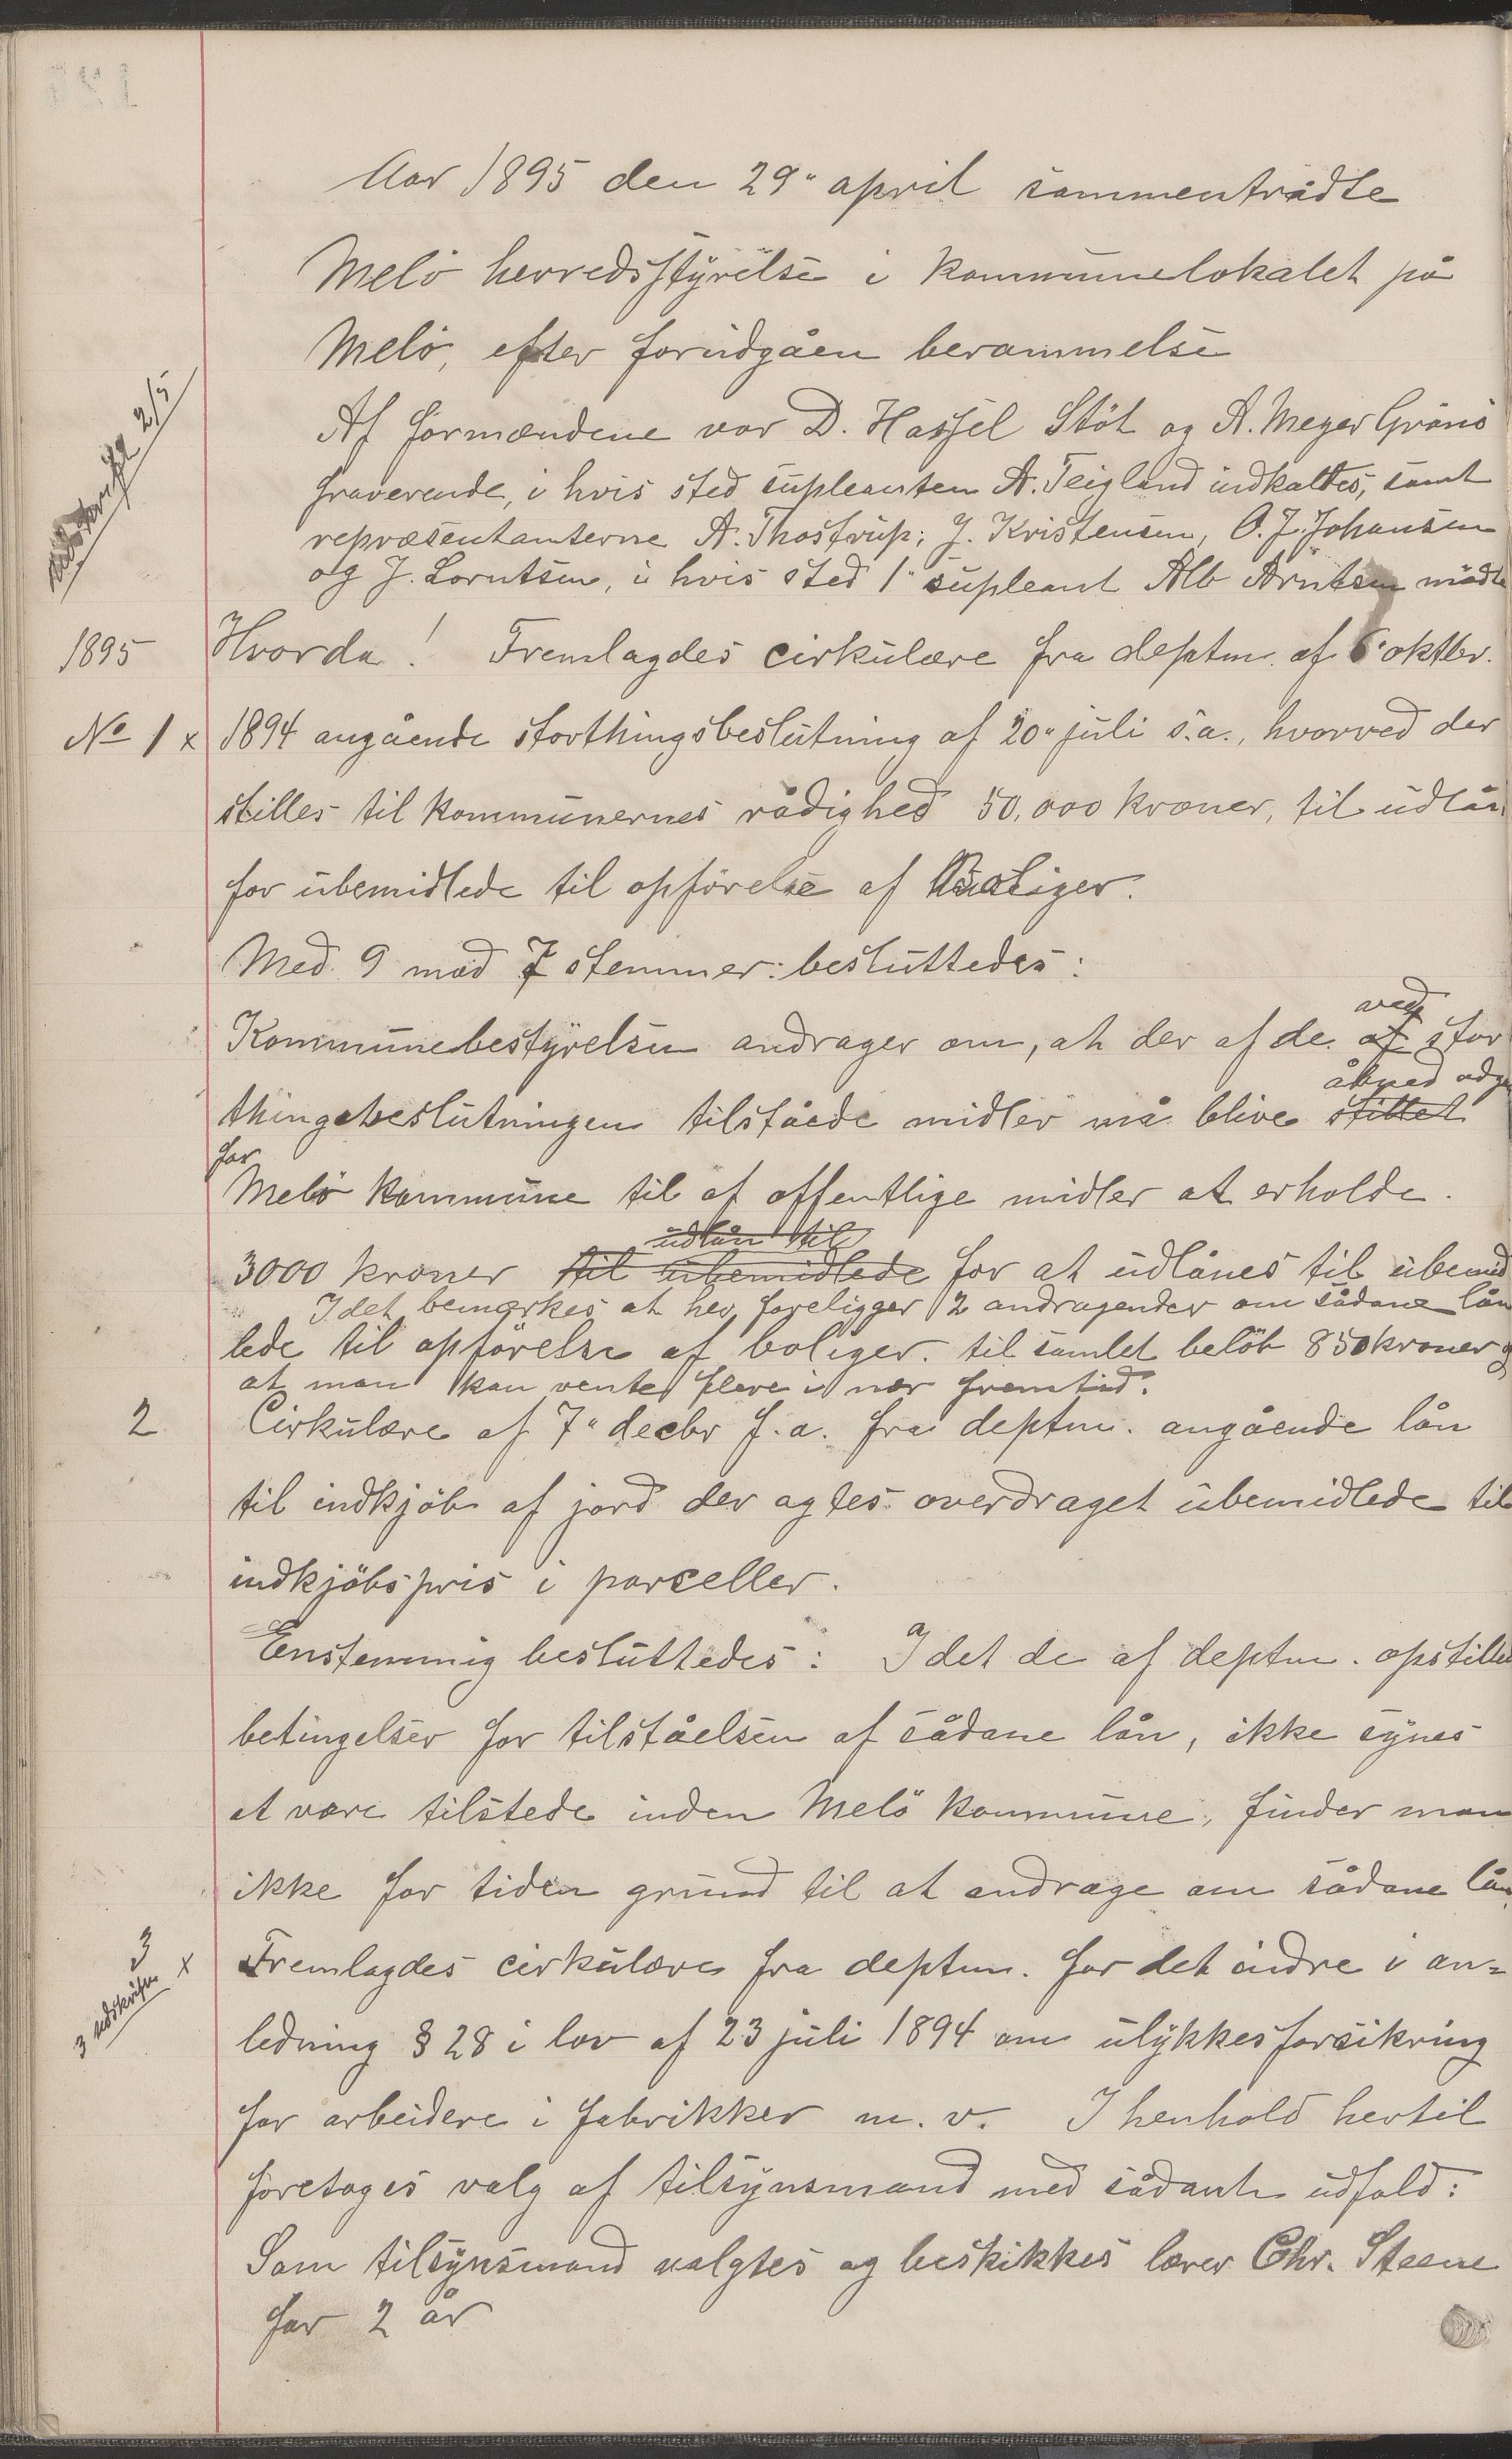 Aar 1895 den 29" april sammentrådte
Melö herredsstyrelse i kommunelokalet på
Melö, efter forudgåen berammelse
2/5
Af formændene var D. Hassel Stöt og A. Meyer Grönö
fraverende, i hvis sted supleanten A. Teigland indkaltes, samt
repræsentanterne A. Thostrup; J. Kristensen, O. J. Johansen
og J. Lorntsen, i hvis sted 1" supleant Alb Arntsen mödte
1895 Hvorda! Fremlagdes cirkulære fra deptm. af 6" oktbr.
No 1 x 1894 angående storthingsbeslutning af 20" juli s.a., hvorved der
stilles til kommunernes rådighed 50,000 kroner, til udlån
for ubemidlede til opförelse af Boliger.
Med 9 mod 7 stemmer: besluttedes:
ved
Kommunebestyrelsen andrager om, at der af de af stor
åbned adga
thingsbeslutningen tilståede midler må blive stillet
for
Melö kommune til af offentlige midler at erholde.
udlån til
3000 kroner til ubemidlede for at udlånes til ubemid
Idet bemærkes at her foreligger 2 andragender om sådane lån
lede til opförelse af boliger. til samlet belöb 850 kroner og
at man kan vente flere i nær fremtid.
2 Cirkulære af 7" decbr f.a. fra deptm. angående lån
til indkjöb af jord der agtes overdraget ubemidlede til
indkjöbspris i parceller.
Enstemmig besluttedes: Idet de af deptm. opstillede
betingelser for tilståelsen af sådane lån, ikke synes
at være tilstede inden Melö kommune, finder man
ikke for tiden grund til at andrage om sådane lån.
3 x Fremlagdes cirkulære fra deptm. for det indre i an=
3 udskrifter
ledning § 28 i lov af 23 juli 1894 om ulykkesforsikring
for arbeidere i fabrikker m. v. I henhold hertil
foretoges valg af tilsynsmand med sådant udfald:
Som tilsynsmand valgtes og beskikkes lærer Chr. Steene
for 2 år